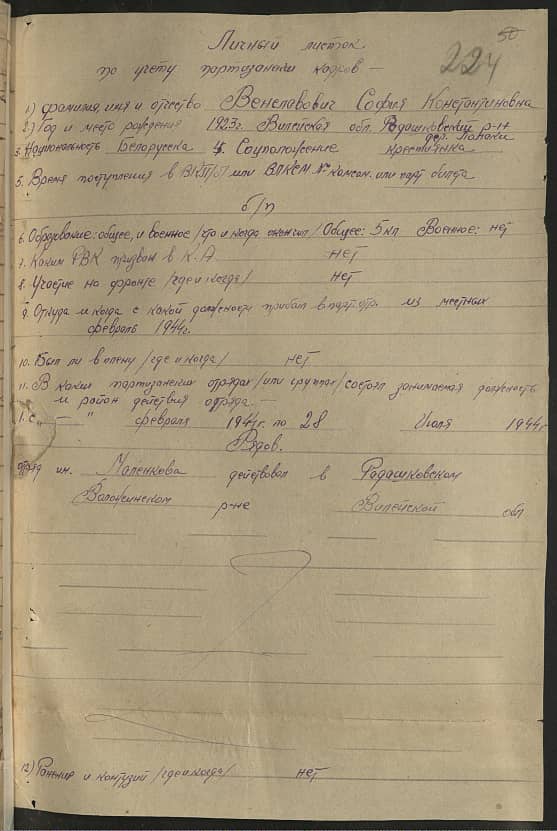 50
224
Личный листок
по учету партизанских кадров —
1) Фамилия, имя и отчество Венславович София Константиновна
2) Год и место рождения 1923г. Вилейская обл. Радашковский р-н
дер.
3. Национальность Белоруска 4. Соцположение крестьянка
5. Время поступления в ВКП/б/ или ВЛКСМ № комсом. или парт билета
б/п
6. Образование: общее, и военное /что и когда окончил/ Общее: 5 кл Военное: нет
7. Каким РВК призван в К.А. нет
8. Участие на фронте /где и когда/ нет
9. Откуда и когда с какой должности прибыл в парт.отр. из местных
февраль 1944г.
10. Был ли в плену /где и когда/ нет
11. В каких партизанских отрядах /или группах/ состоял занимаемая должность
и район действия отряда. —
1. с „ — " февраля 1944г. по 28 июля 1944г.
Рядов.
отряд им. Маленкова действовал в Радашковском
Воложинском р-не Вилейской обл
12) Ранения и контузий /где и когда/ нет